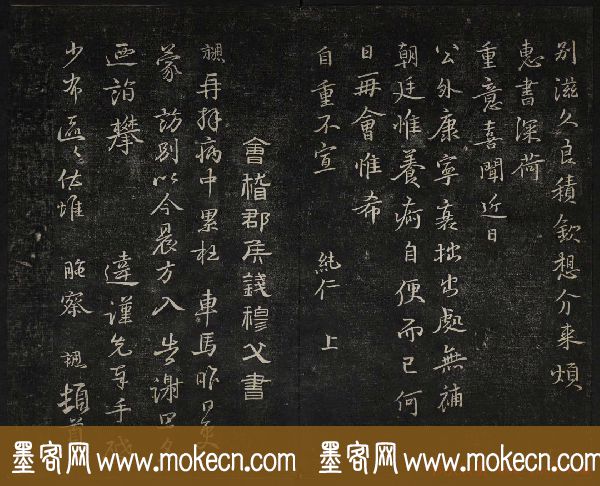 别滋久良積欽想介来煩
惠書深荷
重意喜聞近日
公外康寧衰拙出處無補
朝廷惟養痾自便而已何
日再會惟希
自重不宣 純仁 上
會稽郡侯錢穆父書
勰再拜病中累枉 車馬昨日
蒙 訪別以今晨方入告謝
迺詣攀 違謹先奉手
少布區〻伏惟 照察 勰 頓首
墨客网 www.mokecn.com 墨客网 www.mokecn.com